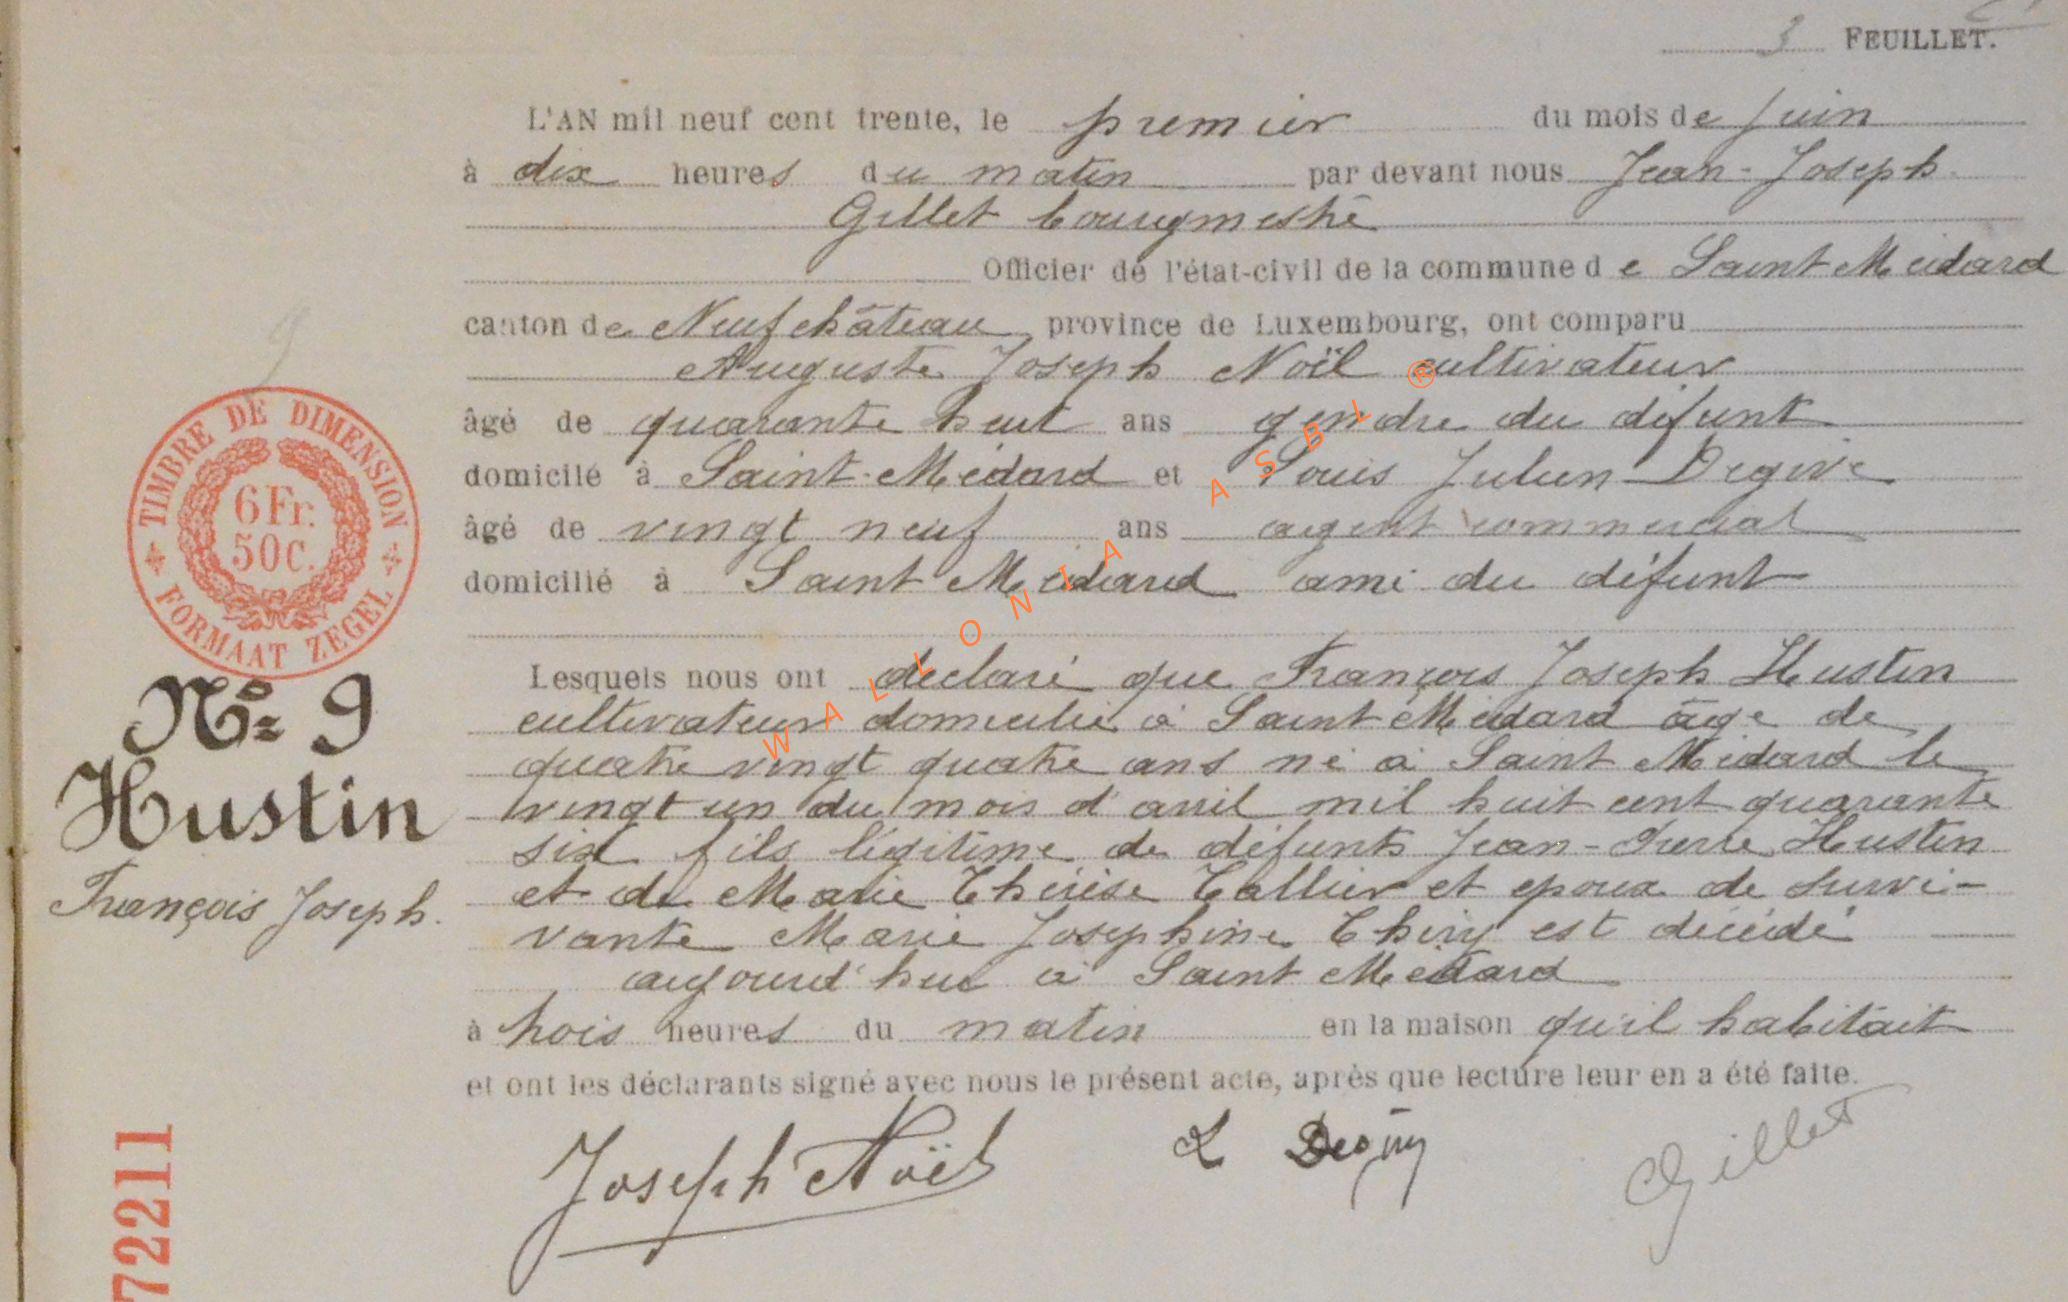 3 FEUILLET.
L'AN mil neuf cent trente, le premier du mois de juin
à dix heures du matin par devant nous Jean-Joseph
Gillet bourgmestre
Officier de l'état-civil de la commune de Saint Médard
canton de Neufchâteau, province de Luxembourg, ont comparu
Auguste Joseph Noël cultivateur
âgé de quarante huit ans gendre du défunt
domicilé à Saint-Médard et Louis Julien Degive
âgé de vingt neuf ans agent commercial
domicilié à Saint Médard ami du défunt
Lesquels nous ont déclaré que François Joseph Hustin
cultivateur domicilié à Saint Médard âgé de
quatre vingt quatre ans né à Saint Médard le
vingt un du mois d'avril mil huit cent quarante
six fils légitime de défunts Jean-Pierre Hustin
et de Marie Thérèse Tallier et époux de survi-
vante Marie Josephine Thiry est décédé
aujourd'hui à Saint Médard
à trois heures du matin en la maison qu'il habitait
et ont les déclarants signé avec nous le présent acte, après que lecture leur en a été faite.
Joseph Noël
L
Gillet
9
TIMBRE DE DIMENSION
6 Fr.
50 C.
FORMAAT ZEGEL
No 9
Hustin
François Joseph.
72211
WALLONIA ASBL ®